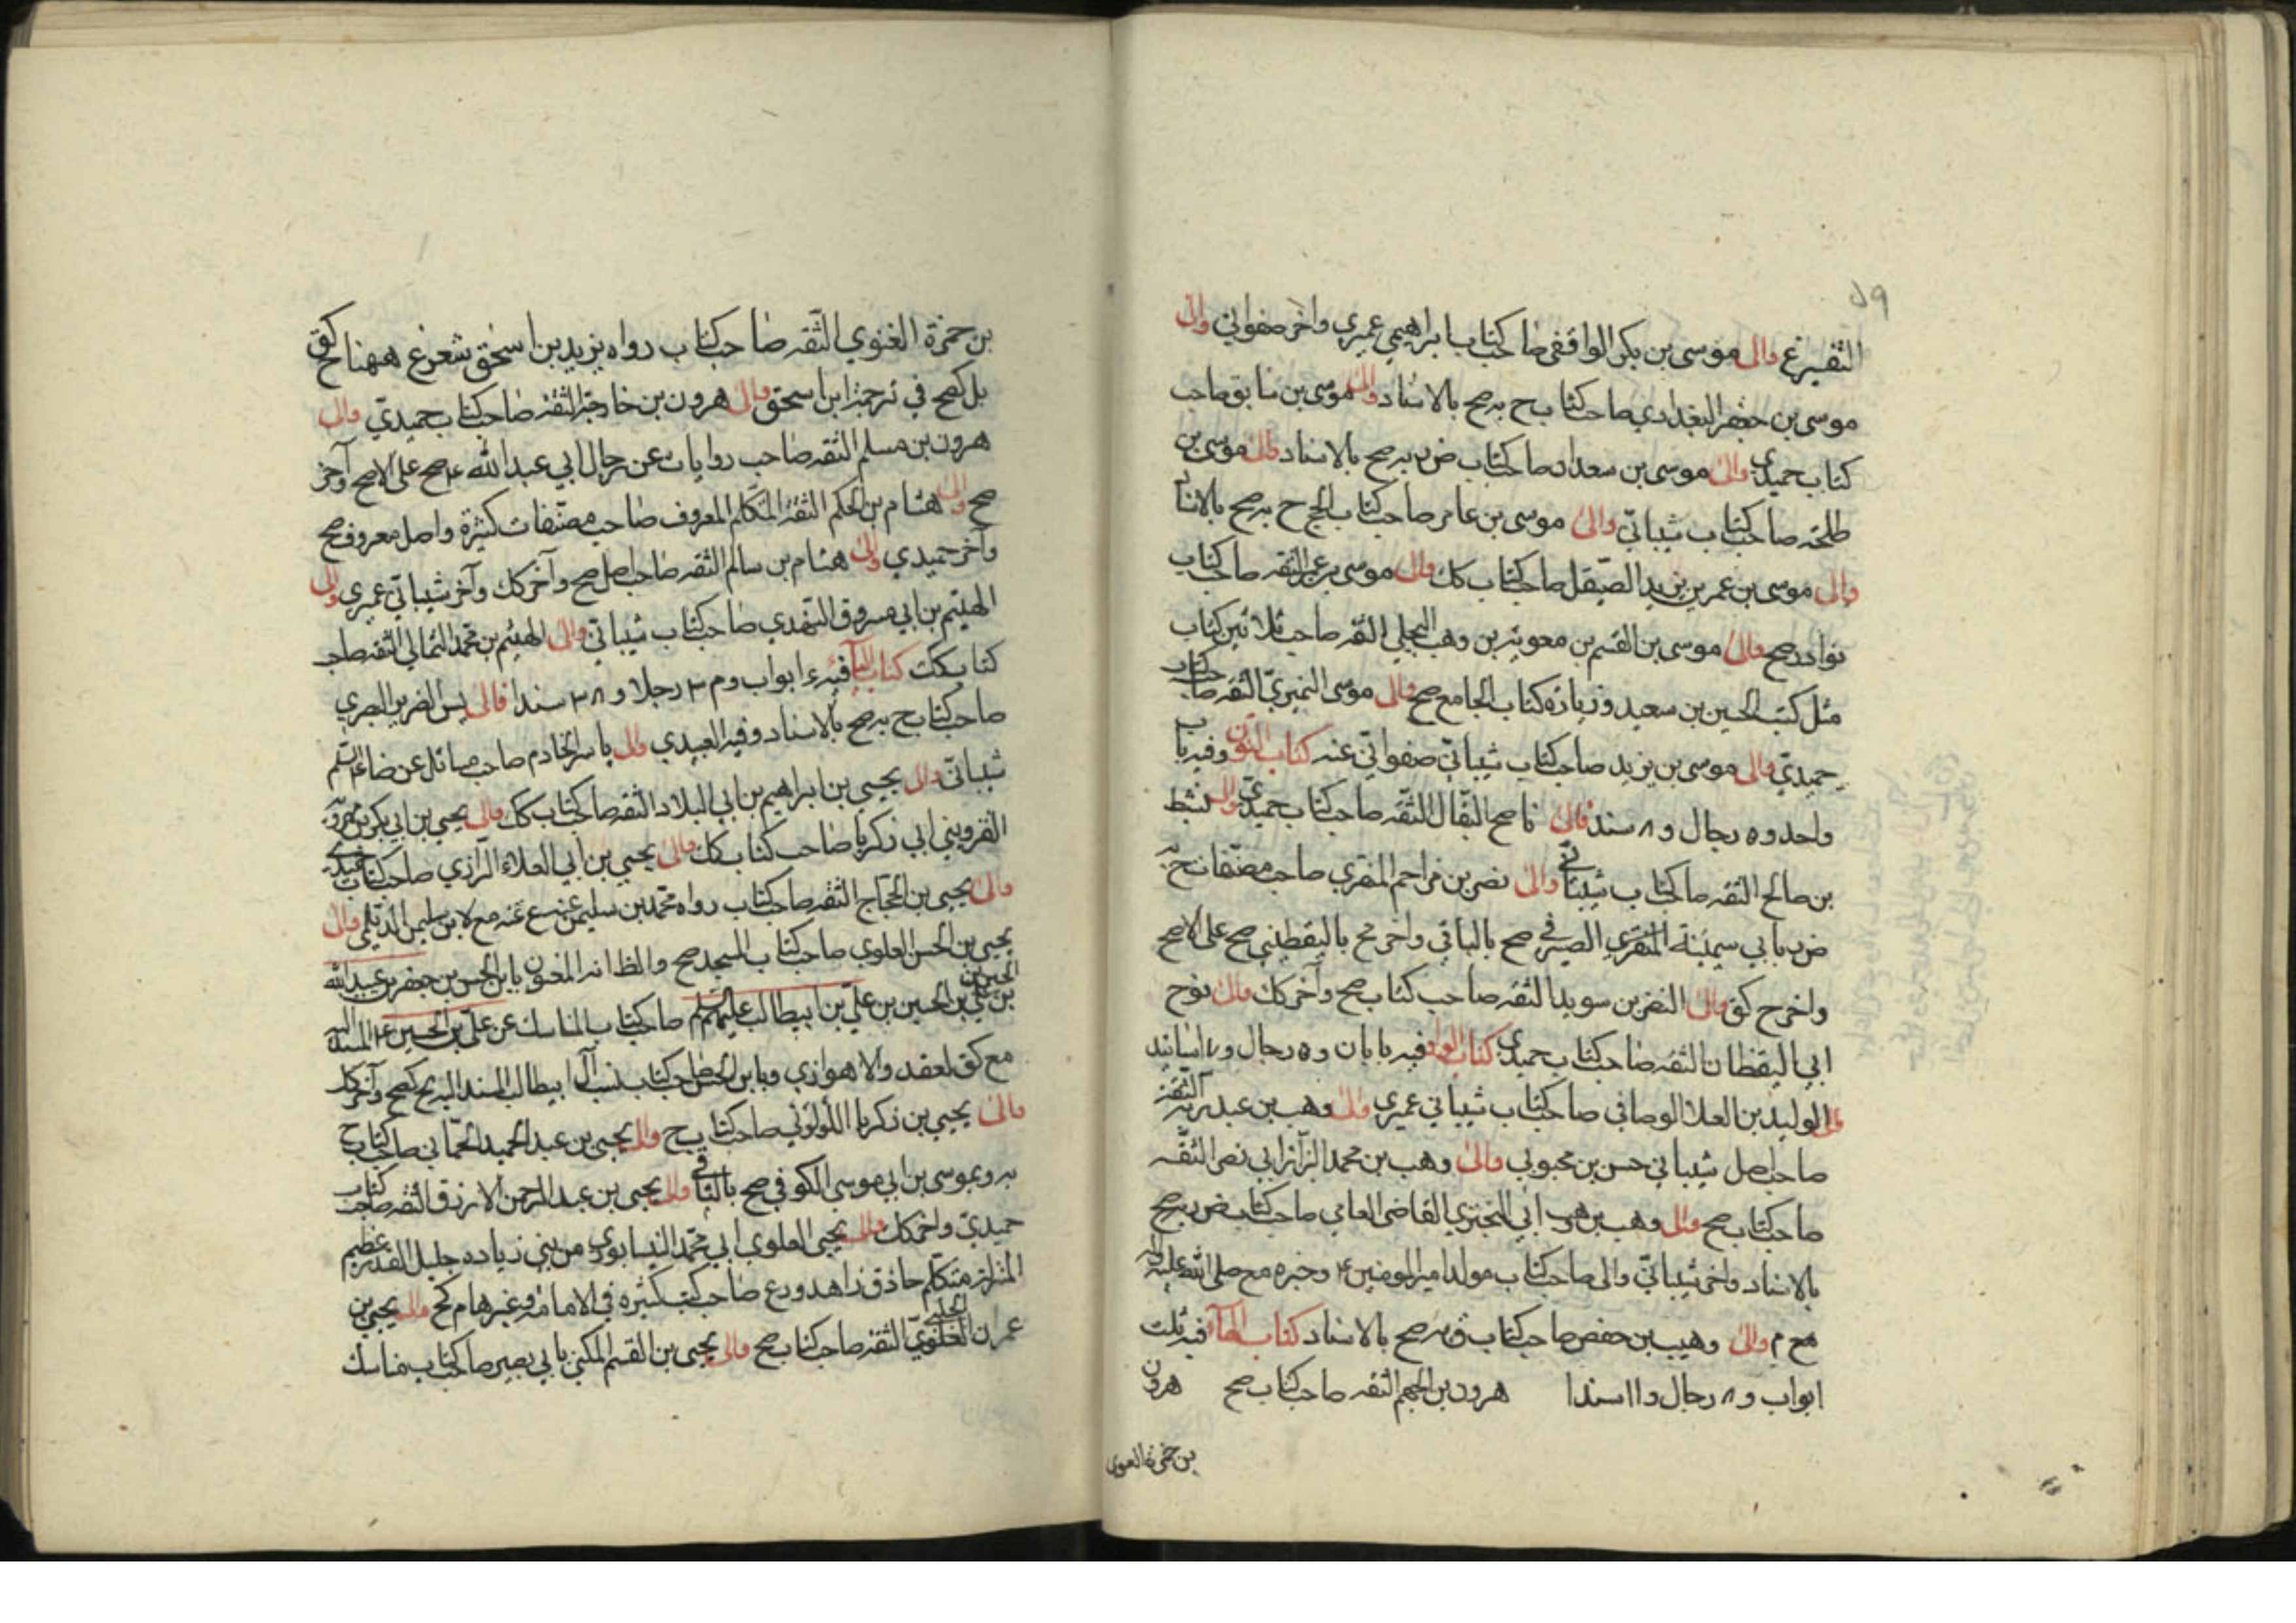 ٥٩
الثقة غ والى موسى بن بكر الواقفي صاحب كتاب ابراهيمي عميري واخر صفواني والى
موسى بن جعفر البغدادي صاحب كتاب ح به صح بالاسناد والى موسى بن سابق صاحب
كتاب حميدي والى موسى بن سعدان صاحب كتاب ض به صح بالاسناد والى موسى بن
طلحة صاحب كتاب شيباني والى موسى بن عامر صاحب كتاب الحج ح به صح بالاسناد
والى موسى بن عمر بن يزيد الصيقل صاحب كتاب كك والى موسى بن عمر الثقه صاحب كتاب
نوادر صح والى موسى بن القسم بن معويه بن وهب البجلي الثقه صاحب ثلاثين كتاب
مثل كتب الحسين بن سعيد وزيادة كتاب الجامع صح والى موسى النميري الثقه صاحب كتاب
حميدي والى موسى بن يزيد صاحب كتاب شيباني صفواني عنه كتاب النون وفيه باب
واحد و٥ رجال و٨ سند فالى ناصح البقال الثقه صاحب كتاب حميدي والى نشيط
بن صالح الثقه صاحب كتاب شيباني والى نصر بن مزاحم المنقري صاحب مصنفات ح به
ض به بابي سمينة المنقري الصيرفي صح بالباقي واخر مح باليقطيني صح على الاصح
واخر ح كق والى النضر بن سويد الثقه صاحب كتاب صح وآخر كك والى نوح
ابي اليقظان الثقه صاحب كتاب حميدي كتاب الواو فيه بابان و٥ رجال و٧ اسانيد
فالى الوليد بن العلا الوصافي صاحب كتاب شيباني عميري والى وهب بن عبد ربه الثقه
صاحب اصل شيباني حسن بن محبوبي والى وهب بن محمد البزاز ابي نصر الثقه
صاحب كتاب صح والى وهب بن وهب ابي البختري القاضي العامي صاحب كتاب ض به صح
بالاسناد واخر شيباني والى صاحب كتاب مولد امير المومنين ع وخبره مع صلى الله عليه وآله
مح م والى وهيب بن حفص صاحب كتاب ق به صح بالاسناد كتاب الهاء فيه ثلث
ابواب و٨ رجال و١١ سندا هرون بن الجهم الثقه صاحب كتاب صح هرون
بن حمزة الغنوي
بن حمزة الغنوي الثقه صاحب كتاب رواه يزيد بن اسحق شعر غ ههنا كق
بل كصح في ترجمة ابن اسحق والى هرون بن خارجة الثقه صاحب كتاب حميدي والى
هرون بن مسلم الثقه صاحب روايات عن رجال ابي عبد الله ع صح على الاصح وآخر
صح والى هشام بن الحكم الثقه المتكلم المعروف صاحب مصنفات كثيرة واصل معروف صح
وآخر حميدي والى هشام بن سالم الثقه صاحب اصل صح وآخر كك وآخر شيباني عميري والى
الهيثم بن ابي مسروق النهدي صاحب كتاب شيباني والى الهيثم بن محمد الثمالي الثقه صاحب
كتاب كك كتاب الياء فيه ٤ ابواب و٢٣ رجلا و٢٨ سندا فالى يس الضرير البصري
صاحب كتاب ح به صح بالاسناد وفيه العبيدي والى ياسر الخادم صاحب مسائل عن ضا عليه السلم
شيباني والى يحيى بن ابراهيم بن ابي البلاد الثقه صاحب كتاب كك والى يحيى بن ابي بكر بن مهرويه
القزويني ابي زكريا صاحب كتاب كك والى يحيى بن ابي العلاء الرازي صاحب كتاب
والى يحيى بن الحجاج الثقه صاحب كتاب رواه محمد بن سليمن عنه ع غ مع لابن سليمن الديلمي والى
يحيى بن الحسن العلوي صاحب كتاب المسجد صح والظانه المعنون بابن الحسن بن جعفر بن عبيد الله
بن الحسين بن علي بن الحسين بن علي بن ابيطالب عليهم السلم صاحب كتاب المناسك عن علي بن الحسين ع المسند اليه
مح كق لعقد والاهوازي وبابن الحسن صاحب كتاب نسب آل ابيطالب المسند اليه مح كصح وآخر كك
والى يحيى بن زكريا اللؤلؤي صاحب كتاب ح والى يحيى بن عبد الحميد الحماني صاحب كتاب ح
به وبموسى بن ابي موسى الكوفي صح بالباقي والى يحيى بن عبد الرحمن الازرق الثقه صاحب كتاب
حميدي واخر كك والى يحيى العلوي ابي محمد النيسابوري من بني زياده جليل القدر عظيم
المنزلة متكلم حاذق زاهد ورع صاحب كتب كثيره في الامامة وغيرها م كح والى يحيى بن
عمران الحلبي الثقه صاحب كتاب صح والى يحيى بن القسم المكنى بابي بصير صاحب كتاب مناسك